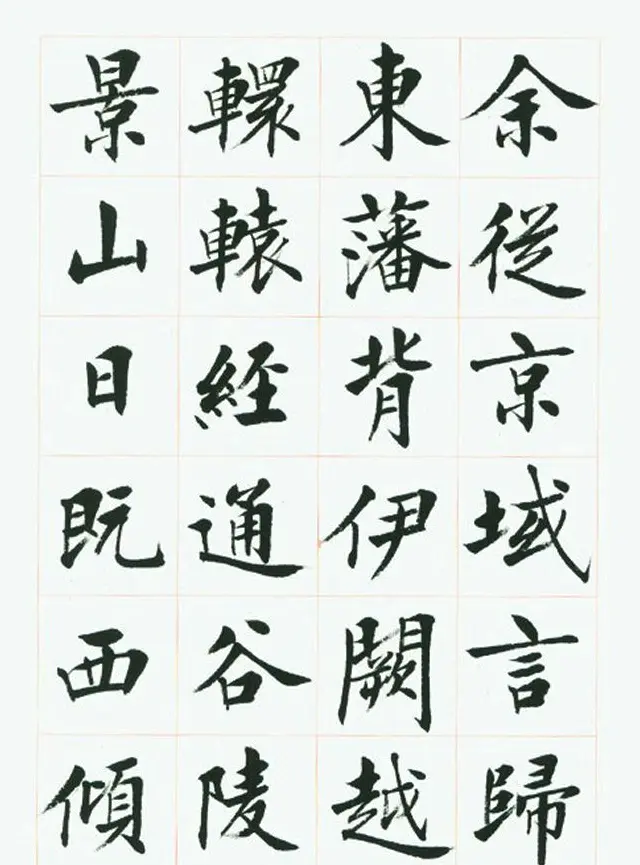 余從京域言歸
東藩背伊闕越
轘轅經通谷陵
景山日既西傾